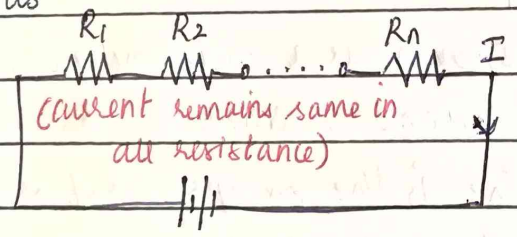 as
R1 R2 Rn I
(current remains same in
all resistance)